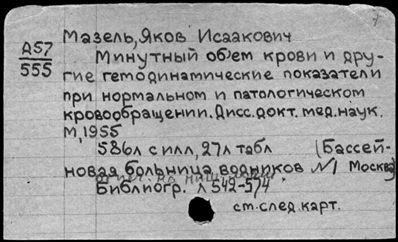 7
Мазель, Яков Исаакович
Д57
555
Минутный об'ем крови и дру-
гие гемодинамические показатели
при нормальном и патологическом
кровообращении. Дисс. докт. мед. наук.
М, 1955
586л с илл, 27л табл (Бассей-
новая больница водников №1 Москва)
Библиогр. л 542-574
см. след. карт.